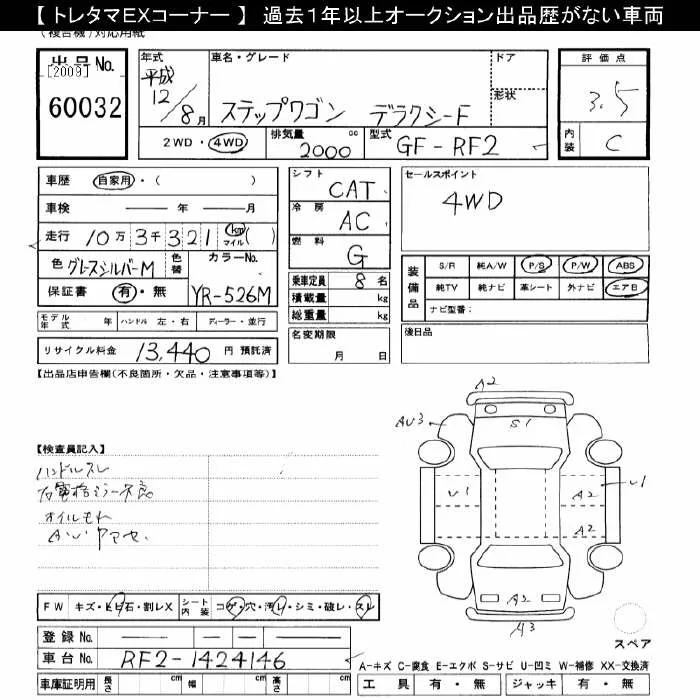 【 トレタマEXコーナー 】 過去１年以上オークション出品歴がない車両
(複合機)対応用紙
出品No.
[2009]
60032
年式 車名・グレード ドア
平成
12/8月 ステップワゴン デラクシーF 形状
2WD・4WD 排気量 2000 cc 型式 GF-RF2
評価点
3.5
内装 C
車歴 自家用・( )
車検 年 月
走行 10万3千321 km マイル ( )
色 グレースシルバーM 色替 カラーNo. YR-526M
保証書 有・無
モデル年式 年 ハンドル 左・右 ディーラー・並行
リサイクル料金 13,440 円 預託済
シフト CAT
冷房 AC
燃料 G
乗車定員 8 名
積載量 kg
総重量 kg
名変期限
月 日
セールスポイント
4WD
装備品 S/R 純A/W P/S P/W ABS
純TV 純ナビ 革シート 外ナビ エアB
ナビ型番:
後日品
【出品店申告欄(不良箇所・欠品・注意事項等)】
【検査員記入】
ハンドルスレ
右電格ミラー不良
オイルもれ
A.U
A2
AU3
S1
U1
A2
U1
A2
A2
A3
スペア
FW キズ・ヒビ石・割レX シート内装 コゲ・穴・汚レ・シミ・破レ・スレ
登録No.
車台No. RF2-1424146
車庫証明用 長さ cm 幅 cm 高さ cm
A-キズ C-腐食 E-エクボ S-サビ U-凹ミ W-補修 XX-交換済
工具 有・無 ジャッキ 有・無